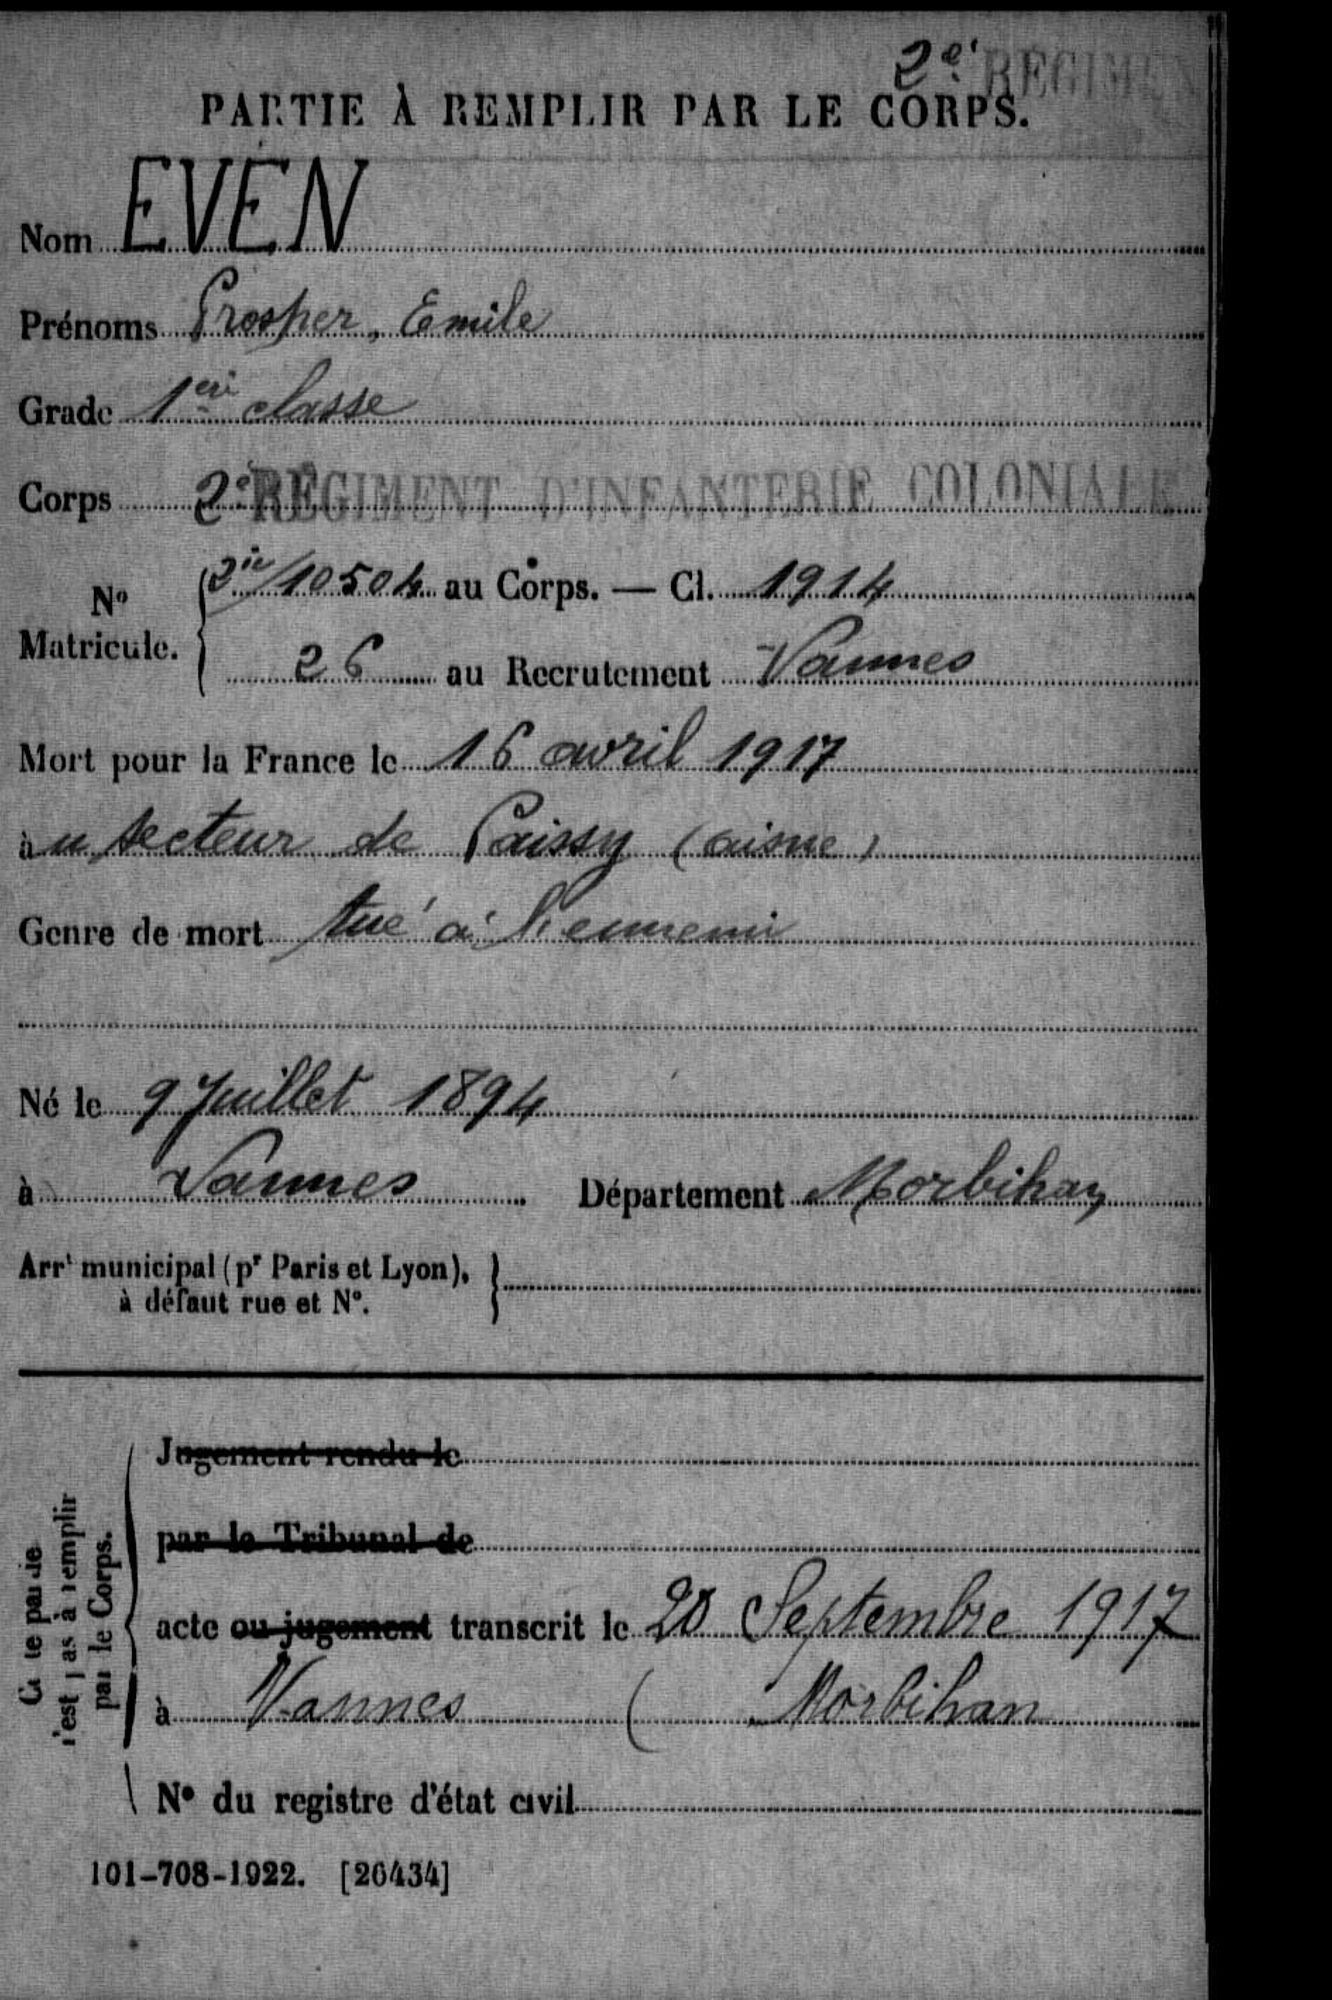 2e REGIMEN
PARTIE À REMPLIR PAR LE CORPS.
Nom EVEN
Prénoms Prosper, Emile
Grade 1ere classe
Corps 2e RÉGIMENT D'INFANTERIE COLONIALE
No Matricule. { 2ic/10504 au Corps. — Cl. 1914
26 au Recrutement Vannes
Mort pour la France le 16 avril 1917
àu secteur de Paissy (aisne)
Genre de mort tué à l'ennemi
Né le 9 Juillet 1894
à Vannes Département Morbihan
Arrt municipal (pr Paris et Lyon), }
à défaut rue et No.
Jugement rendu le
par le Tribunal de
acte ou jugement transcrit le 20 Septembre 1917
à Vannes ( Morbihan
No du registre d'état civil
Cette partie
n'est pas à remplir
par le Corps.
101-708-1922. [26434]